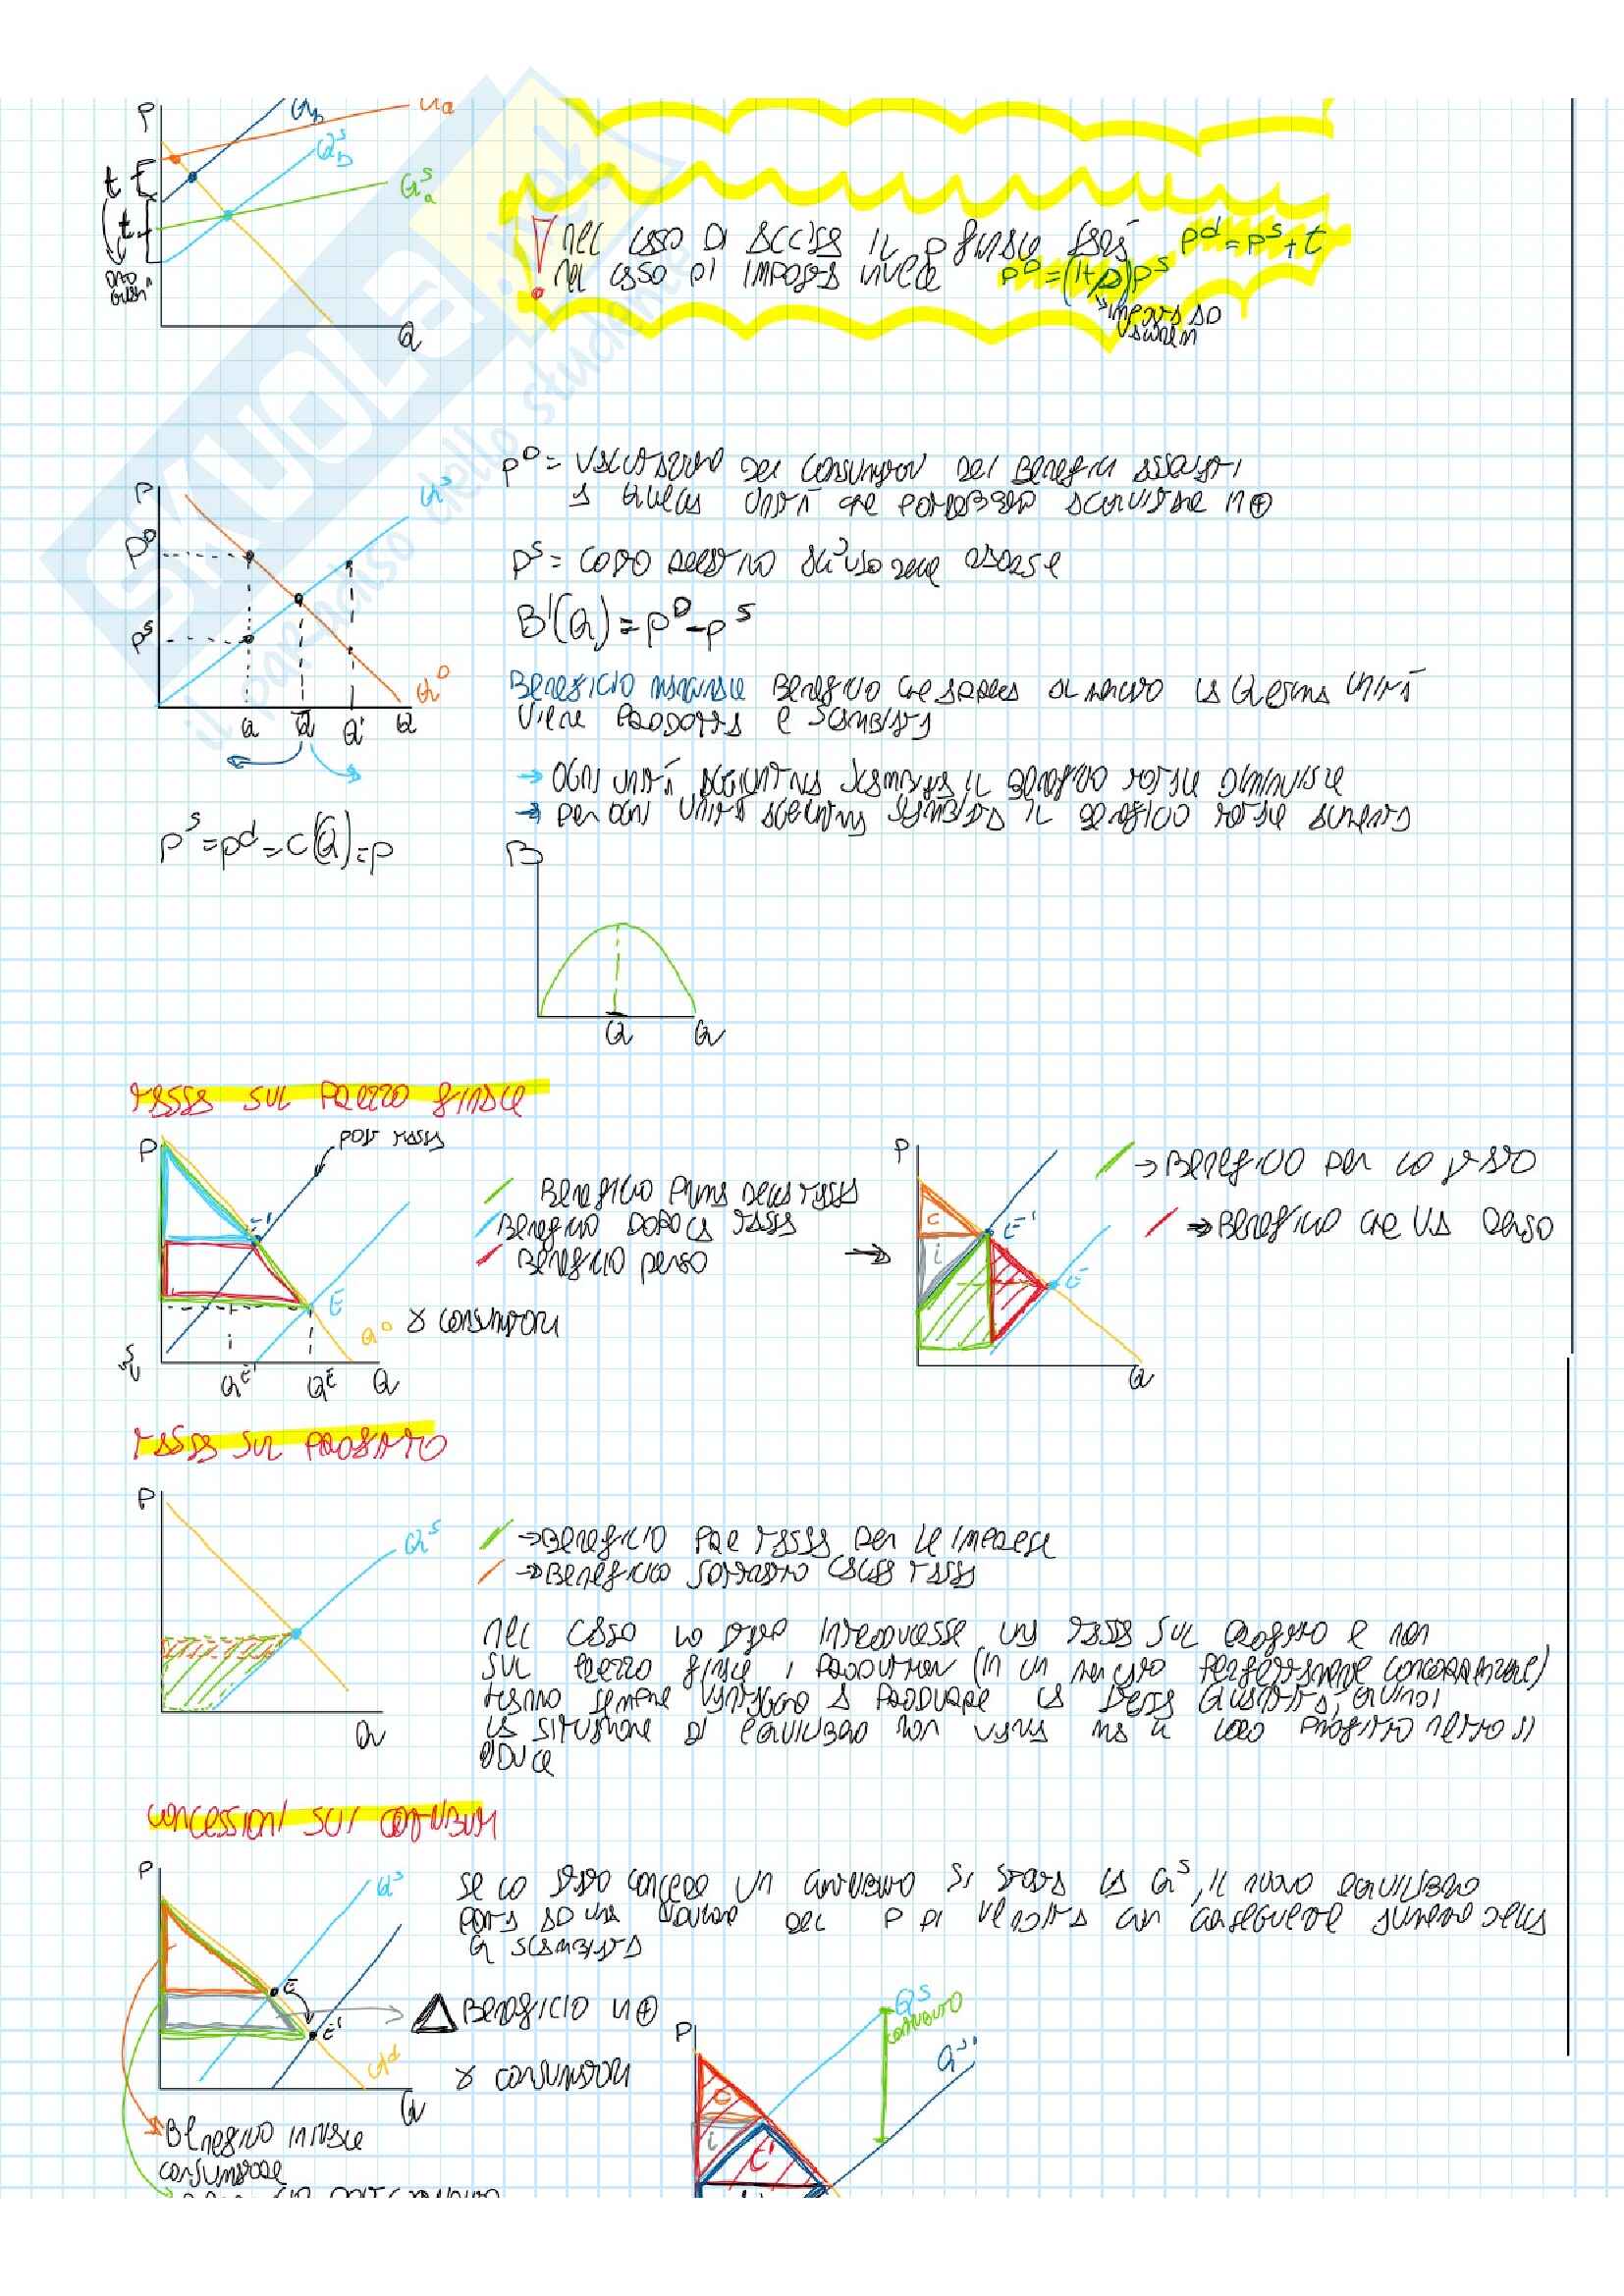 P
t
t
Q
nel caso di accisa il p finale sarà p^d = p^s + t
nel caso di imposta invece p^D = (1+ )p^s
imposta ad
valorem
SKUOLA.net
il paradiso dello studente
p^D = valutazione dei consumatori dei benefici associati
a quella unità che potrebbero acquistare in ⊕
p^s =
B'(Q) = p^D - p^s
Beneficio marginale Beneficio che genera al mercato la Q-esima unità
viene prodotta e scambiata
→ ogni unità aggiuntiva scambiata il beneficio totale diminuisce
→ per ogni unità aggiuntiva scambiata il beneficio totale aumenta
P
P^D
P^s
Q^s
Q^D
Q Q̄ Q' Q
p^s = p^d = c(Q̄) = p
B
Q Q
tassa sul prezzo finale
P
post tassa
Beneficio prima della tassa
Beneficio dopo la tassa
Beneficio perso
x consumatori
E'
E
Q^D
i
Q^E' Q^E Q
P
→ Beneficio per lo stato
→ Beneficio che va perso
c
i
E'
E
Q
tassa sul profitto
P
Q^s
Q
→ Beneficio pre tassa per le imprese
→ Beneficio sottratto dalla tassa
nel caso lo stato introducesse una tassa sul profitto e non
sul prezzo finale i produttori (in un mercato perfettamente concorrenziale)
hanno sempre vantaggio a produrre la stessa quantità, quindi
la situazione di equilibrio non varia ma il loro profitto netto si
riduce
concessioni sui contributi
P
Q^s
E
E'
Q^d
Q
se lo stato concede un contributo si sposta la Q^s, il nuovo equilibrio
porta ad una riduzione del p di vendita con conseguente aumento della
Q scambiata
Beneficio in ⊕
x consumatori
Beneficio iniziale
consumatore
P
Q^s
contributo
Q^s'
c
i